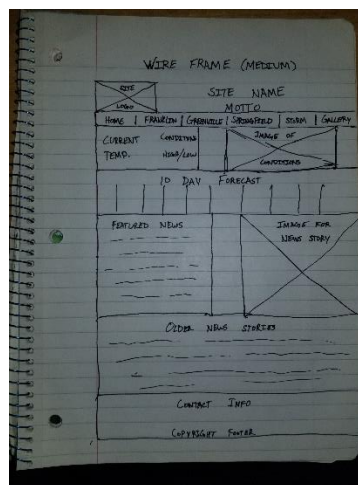 WIRE FRAME (MEDIUM)
SITE
LOGO
SITE NAME
MOTTO
HOME | FRANKLIN | GREENVILLE | SPRINGFIELD | STORM | GALLERY
CURRENT CONDITIONS
TEMP. HIGH/LOW
IMAGE OF
CONDITIONS
10 DAY FORECAST
FEATURED NEWS
IMAGE FOR
NEWS STORY
OLDER NEWS STORIES
CONTACT INFO
COPYRIGHT FOOTER